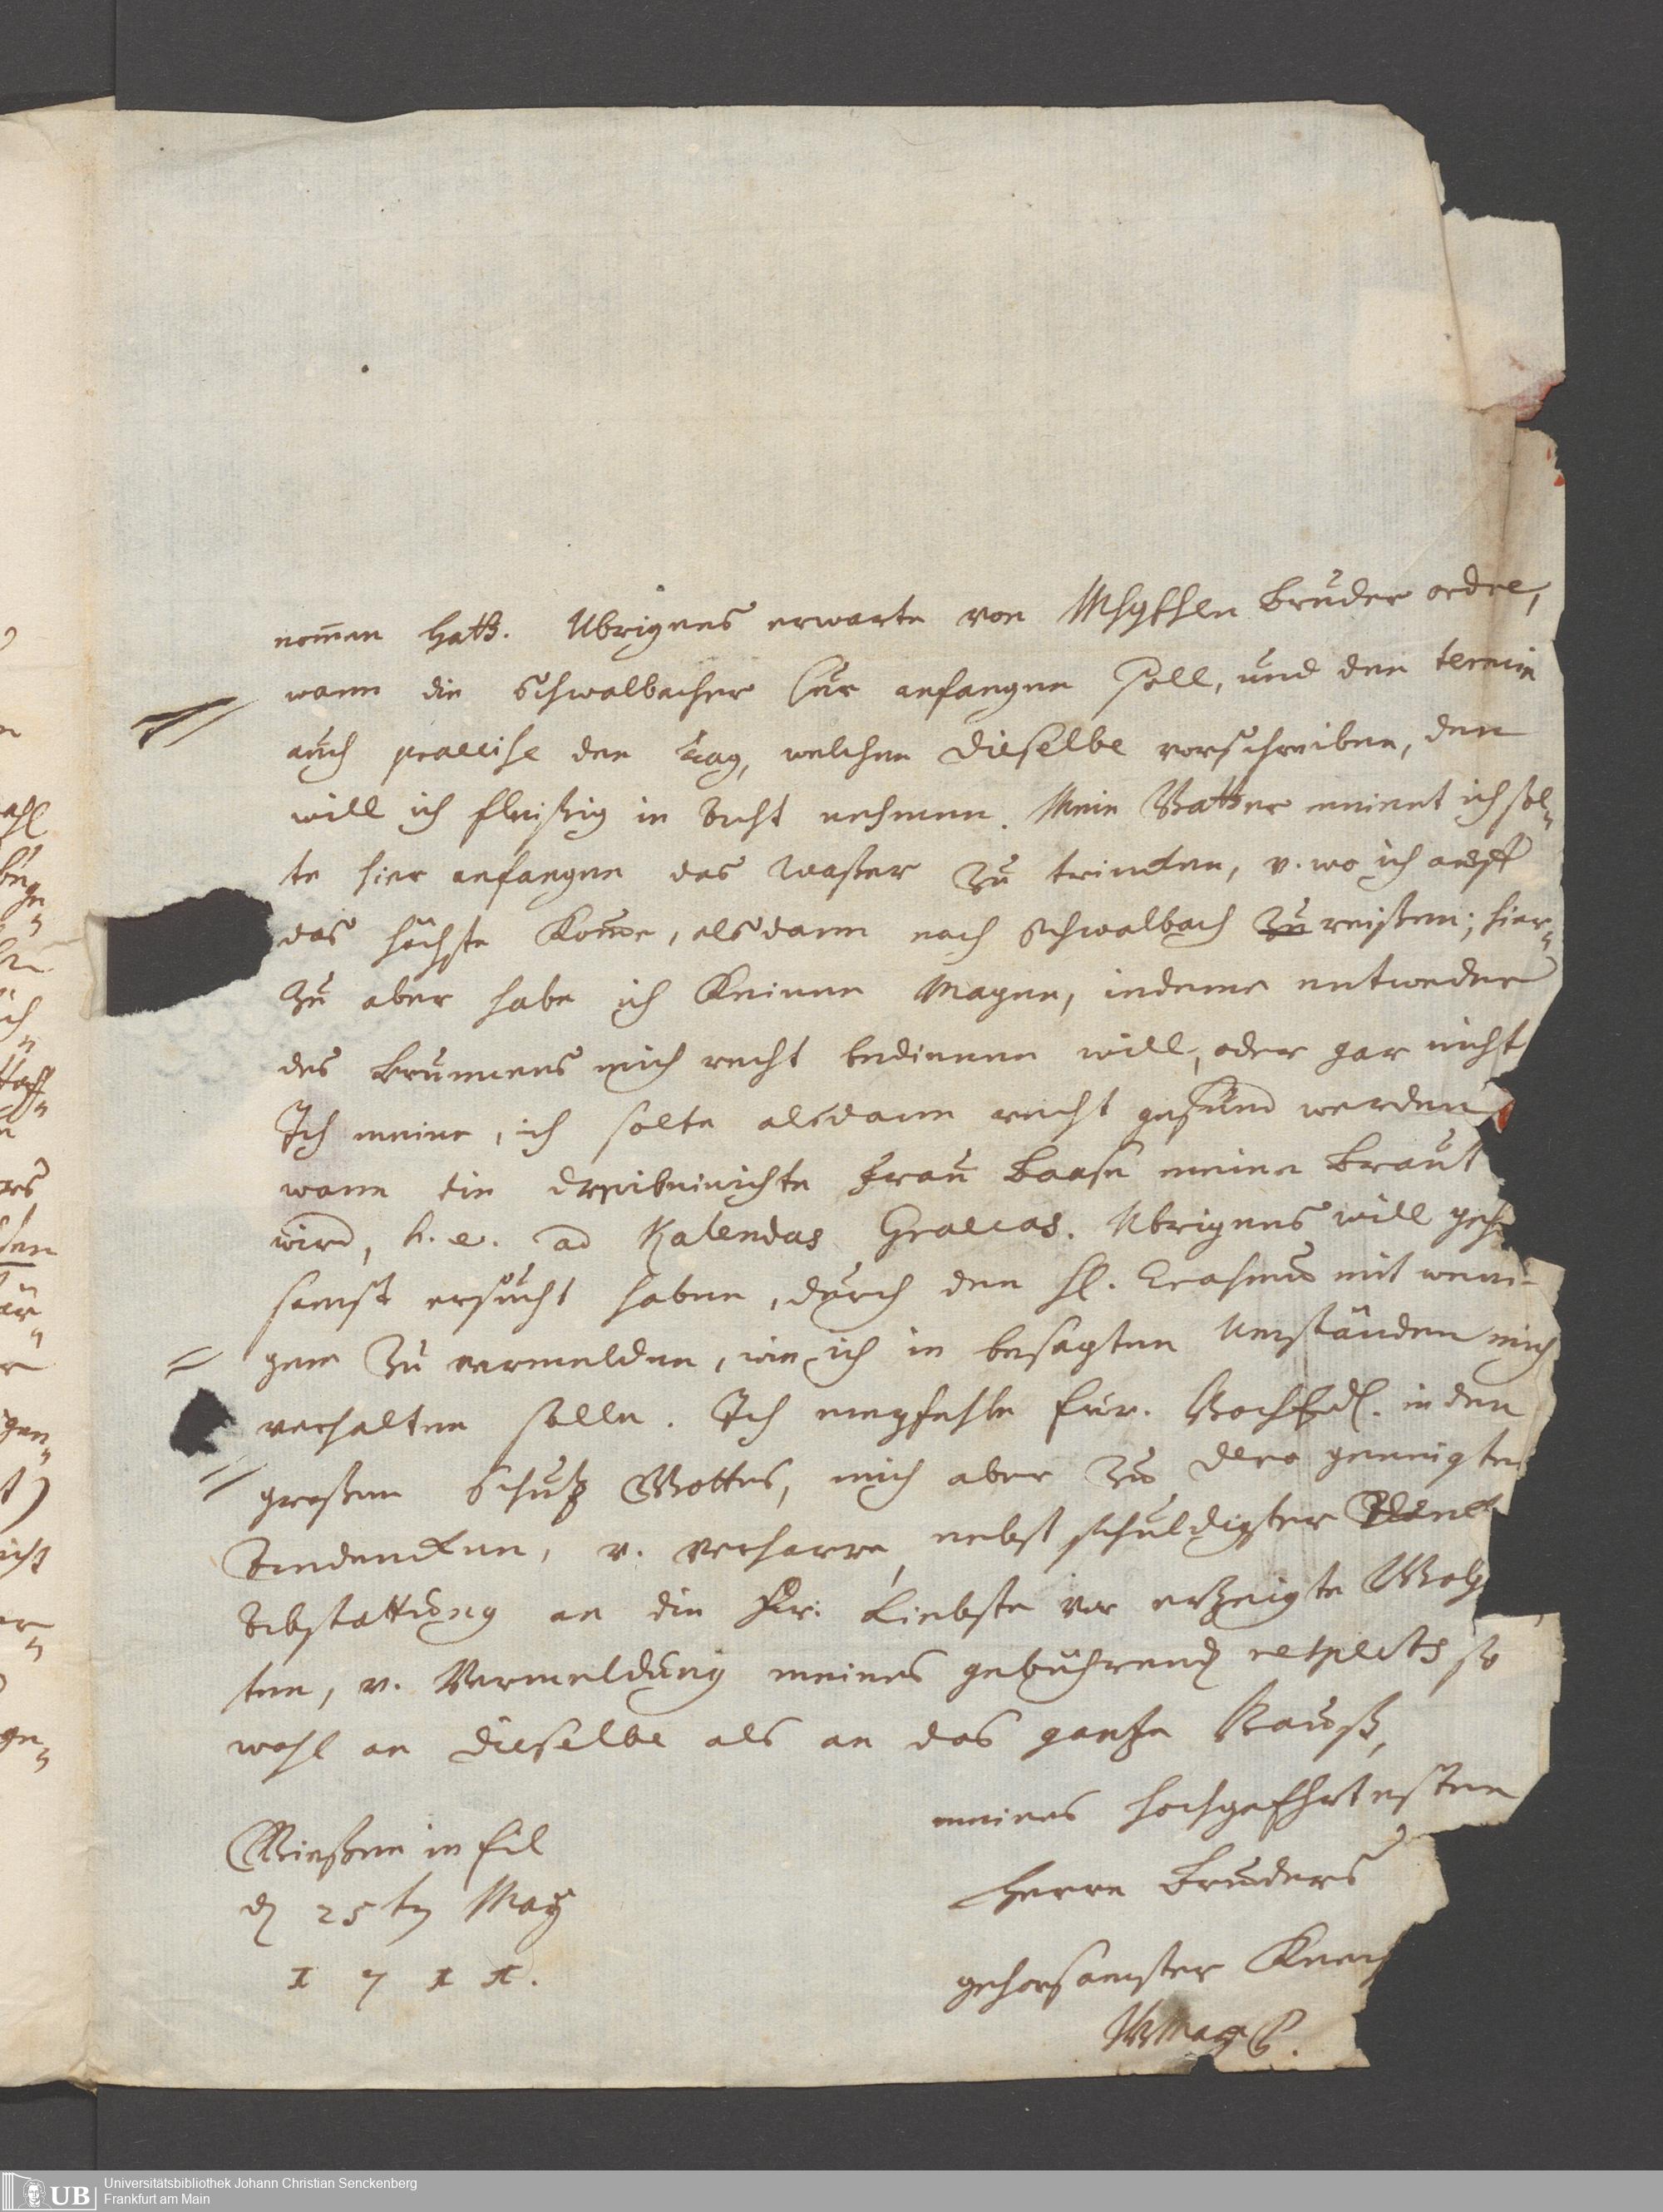 nommen hatt. Ubrigens erwarte von Bruder ordre,
wann die Schwalbacher Cur anfangen soll, und den termin
auch praecise den Tag, welchen dieselbe vorschreiben, den
will ich fleißig in acht nehmen. Mein Vatter meinet ich sol-
te hier anfangen das Waßer zu trincken, v. wo ich auffs
das höchste komme, alsdann nach Schwalbach zu reißen; hier-
zu aber habe ich keinen Magen, indeme entweder
des Brunnens mich recht bedienen will, oder gar nicht
Ich meine, ich solte alsdann recht gesund werden
wann die dreibeinichte Frau Baase meine Braut
wird, h. e. ad Kalendas Graecas. Ubrigens will geh
samst ersucht haben, durch den H. Erasmus mit weni-
gem zu vermelden, wie ich in besagten Umständen mich
verhalten solle. Ich empfehle Eur. HochEdl. in den
großen Schutz Gottes, mich aber zu dero geneigten
Andencken, v. verharre, nebst schuldigster Danck
Abstattung an die Fr. Liebste vor erzeigte Wolth
ten, v. Vermeldung meines gebührend respects so
wohl an dieselbe als an das gantze Hauß,
meines hochgeEhrtesten
Herrn Bruders
gehorsamster Knech
Gießen in Eil
d 25ten May
1 7 1 1.
Universitätsbibliothek Johann Christian Senckenberg
Frankfurt am Main
UB